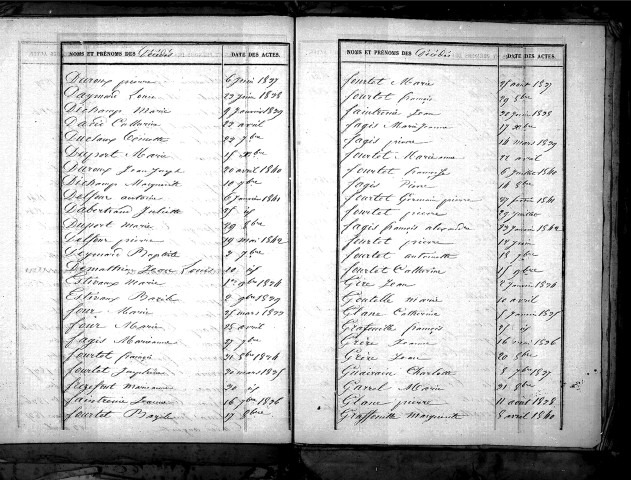 NOMS ET PRÉNOMS DES Décédés DATE DES ACTES.
Duroux pierre 6 juin 1837
Daymard Louis 22 juin 1838
Dechamps Marie 9 janvier 1839
Catherine 22 avril
Duclaux 22 7bre
Duport Marie 15 Xbre
Duroux Jean 20 avril 1840
Dechamps Marguerite 10 9bre
Delfour antoine 6 janvier 1841
Dabertrand Juliette 25 id
Duport marie 29 8bre
Delfour pierre 19 mai 1842
Deymard Baptiste 2 7bre
Louise 10 id
Estivaux Marie 1er 9bre 1824
Estivaux Bazile 2 9bre 1829
four Marie 25 mars 1822
four Marie 18 avril
fagis Marianne 27 7bre
fourtot françois 21 8bre 1824
fourtot 20 mars 1825
marianne 20 id
faintrenie Jeanne 16 7bre 1826
fourtot Bazile 17 8bre
NOMS ET PRÉNOMS DES Décédés DATE DES ACTES.
fourtot Marie 25 août 1837
fourtot françois 29 8bre
faintrenie Jean 22 juin 1838
fagis Marie Jeanne 17 Xbre
fagis pierre 14 mars 1839
fourtot Marianne 22 avril
fourtot françoise 6 juillet 1840
fagis Pierre 14 8bre
fourtot Germain pierre 27 février 1841
fourtot pierre 29 juillet
fagis françois alexandre 22 janvier 1842
fourtot pierre 12 juin
fourtot antoinette 18 7bre
fourtot Catherine 15 9bre
Gère Jean 2 janvier 1824
Goutelle marie 10 avril
Glane Catherine 5 janvier 1825
Graffouille françois 25 id
Grère Jeanne 16 mai 1826
Grère Jean 20 8bre
Charlotte 8 7bre 1827
Garrel Marie 21 8bre
Glane pierre 11 août 1838
Graffouille marguerite 8 avril 1840